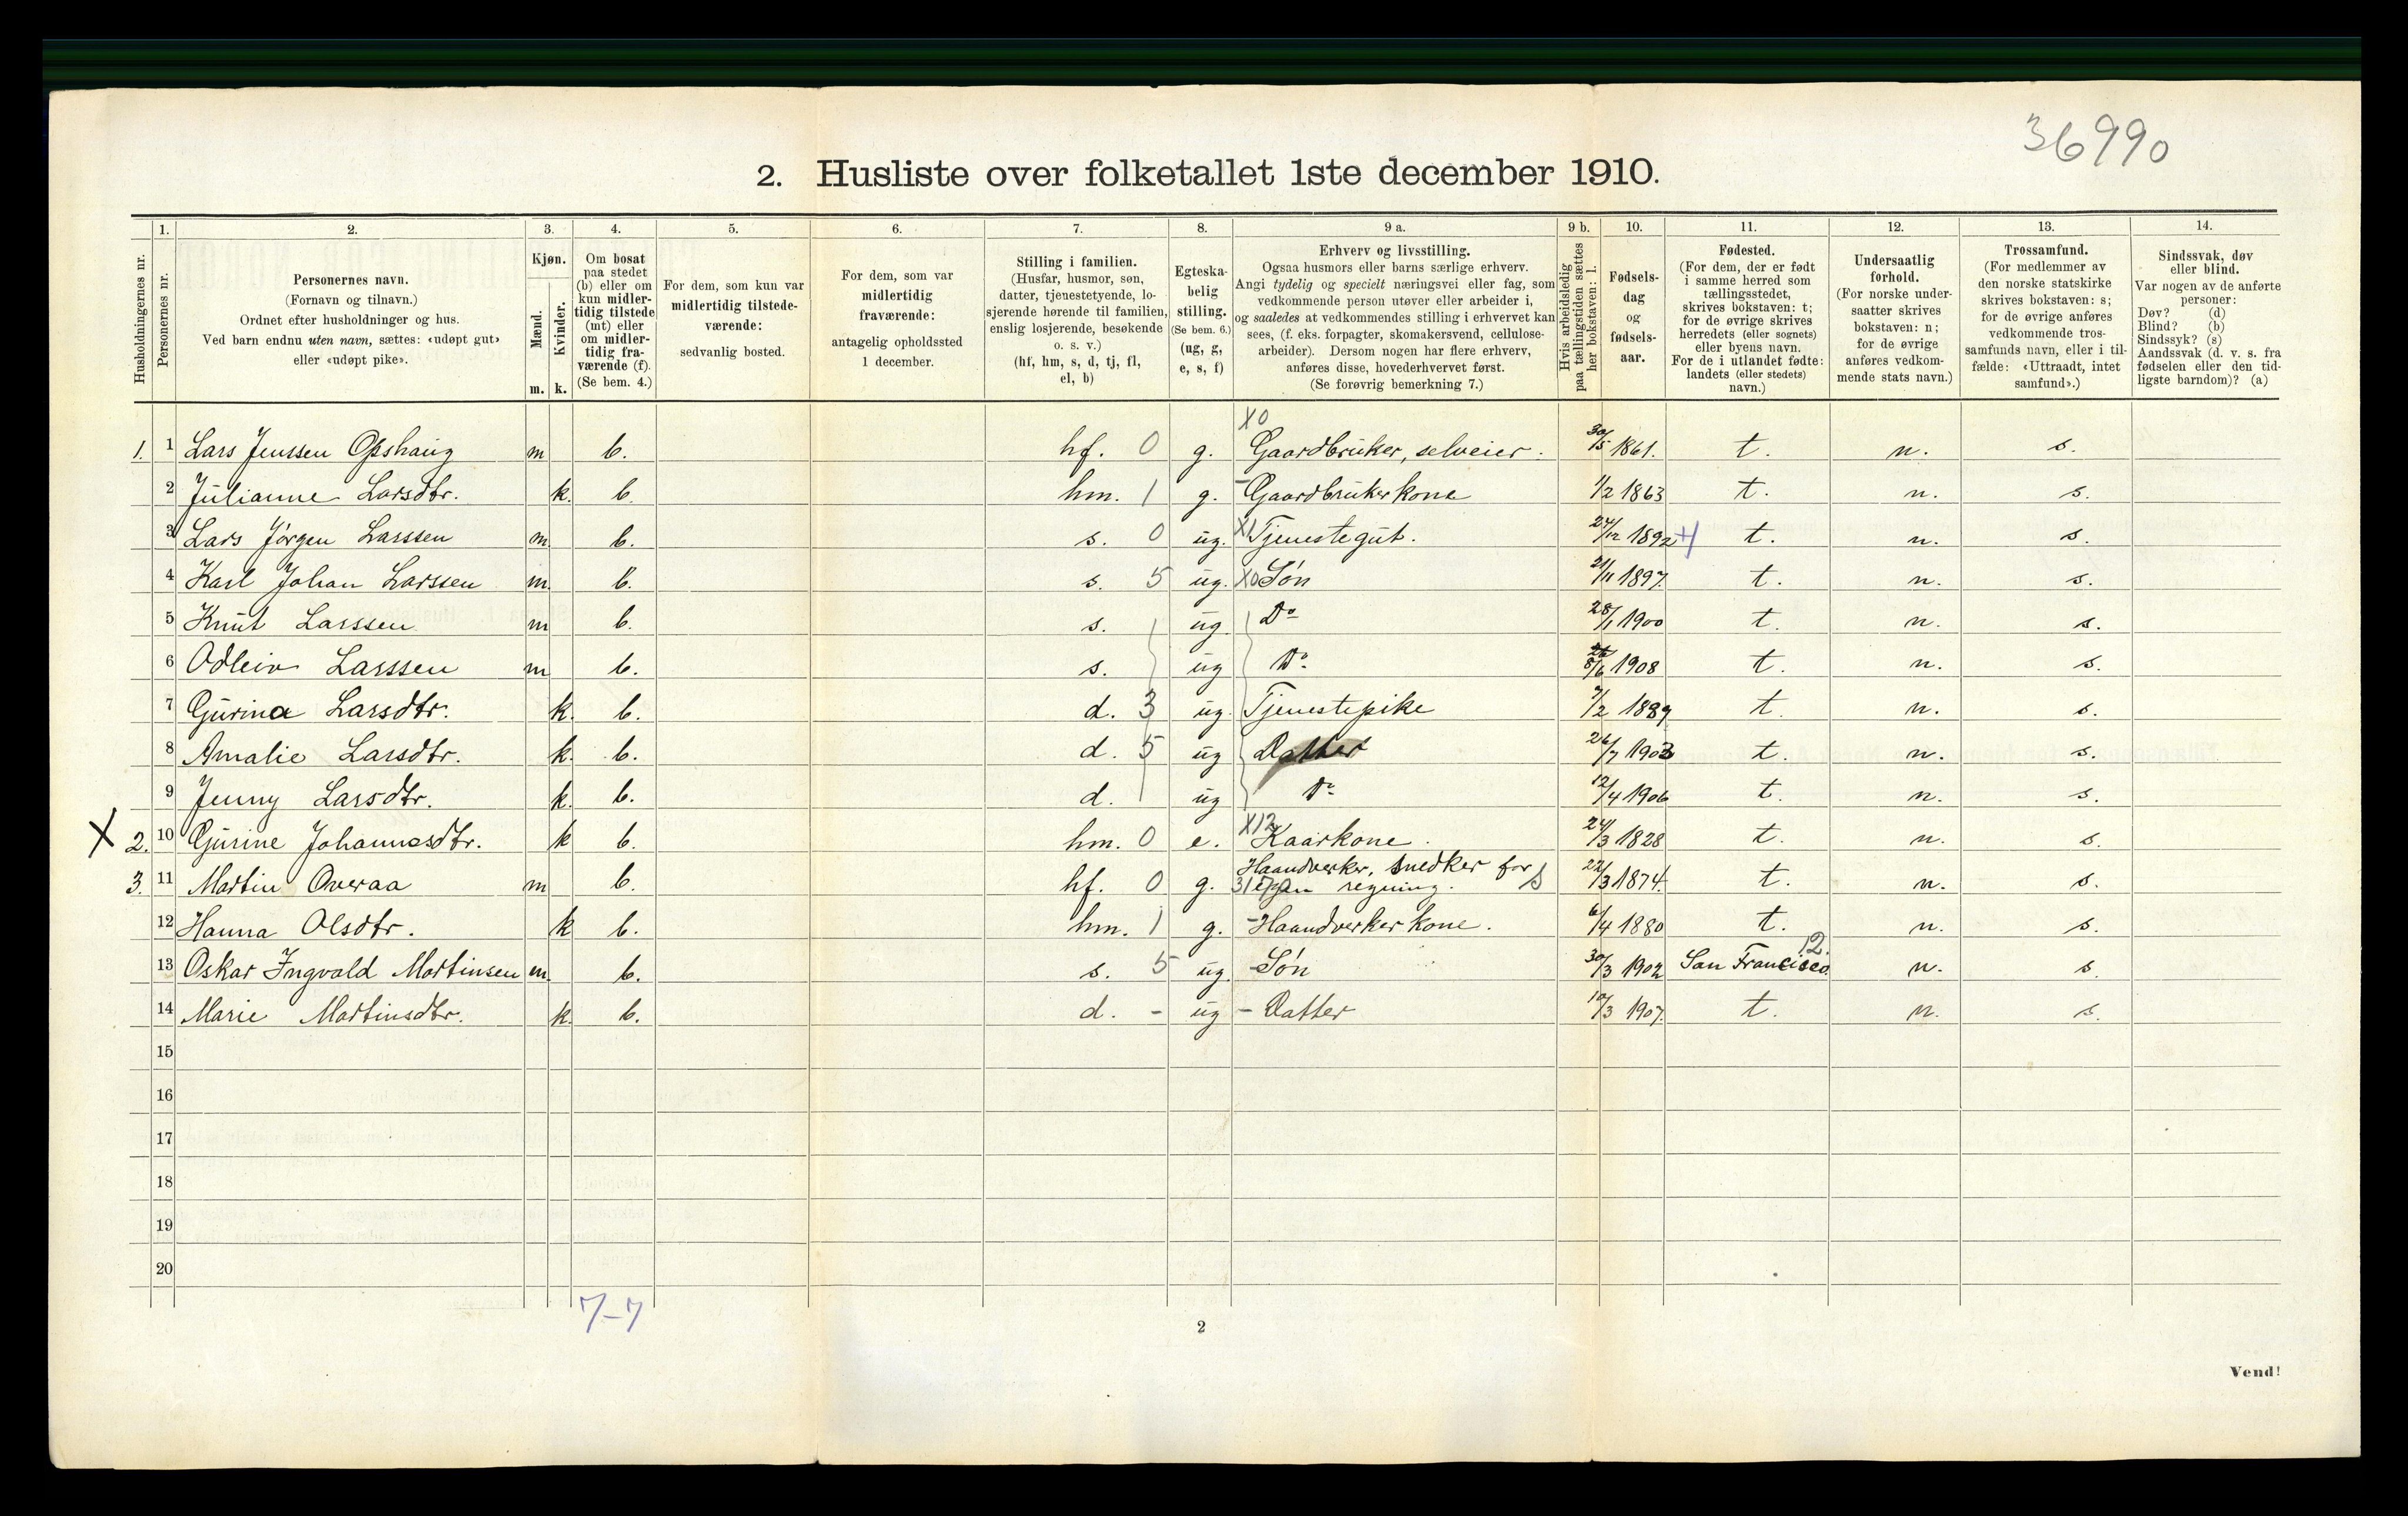 36990
2. Husliste over folketallet 1ste december 1910.
Husholdningernes nr.
1.
Personernes nr.
2.
Personernes navn.
(Fornavn og tilnavn.)
Ordnet efter husholdninger og hus.
Ved barn endnu uten navn, sættes: «udøpt gut»
eller «udøpt pike».
3.
Kjøn.
Mænd.
Kvinder.
m. k.
4.
Om bosat
paa stedet
(b) eller om
kun midler-
tidig tilstede
(mt) eller
om midler-
tidig fra-
værende (f).
(Se bem. 4.)
5.
For dem, som kun var
midlertidig tilstede-
værende:
sedvanlig bosted.
6.
For dem, som var
midlertidig
fraværende:
antagelig opholdssted
1 december.
7.
Stilling i familien.
(Husfar, husmor, søn,
datter, tjenestetyende, lo-
sjerende hørende til familien,
enslig losjerende, besøkende
o. s. v.)
(hf, hm, s, d, tj, fl,
el, b)
8.
Egteska-
belig
stilling.
(Se bem. 6.)
(ug, g,
e, s, f)
9 a.
Erhverv og livsstilling.
Ogsaa husmors eller barns særlige erhverv.
Angi tydelig og specielt næringsvei eller fag, som
vedkommende person utøver eller arbeider i,
og saaledes at vedkommendes stilling i erhvervet kan
sees, (f. eks. forpagter, skomakersvend, cellulose-
arbeider). Dersom nogen har flere erhverv,
anføres disse, hovederhvervet først.
(Se forøvrig bemerkning 7.)
9 b.
Hvis arbeidsledig
paa tællingstiden sættes
her bokstaven: l.
10.
Fødsels-
dag
og
fødsels-
aar.
11.
Fødested.
(For dem, der er født
i samme herred som
tællingsstedet,
skrives bokstaven: t;
for de øvrige skrives
herredets (eller sognets)
eller byens navn.
For de i utlandet fødte:
landets (eller stedets)
navn.)
12.
Undersaatlig
forhold.
(For norske under-
saatter skrives
bokstaven: n;
for de øvrige
anføres vedkom-
mende stats navn.)
13.
Trossamfund.
(For medlemmer av
den norske statskirke
skrives bokstaven: s;
for de øvrige anføres
vedkommende tros-
samfunds navn, eller i til-
fælde: «Uttraadt, intet
samfund».)
14.
Sindssvak, døv
eller blind.
Var nogen av de anførte
personer:
Døv? (d)
Blind? (b)
Sindssyk? (s)
Aandssvak (d. v. s. fra
fødselen eller den tid-
ligste barndom)? (a)
X0
1. 1 Lars Jenssen Opshaug m b. hf. 0 g. Gaardbruker, selveier. 30/5 1861. t. n. s.
2 Julianne Larsdtr. k. b. hm. 1 g. - Gaardbrukerkone 1/2 1863 t. n. s.
3 Lars Jørgen Larssen m. b. s. 0 ug. X1 Tjenestegut. 24/12 1892 t. n. s.
4 Karl Johan Larssen m. b. s. 5 ug. X0 Søn 21/11 1897. t. n. s.
5 Knut Larssen m b. s. ug. Do 28/1 1900 t. n. s.
6 Odleiv Larssen m b. s. ug Do 8/6 1908 t. n. s.
7 Gurina Larsdtr. k. b. d. 3 ug. Tjenestepike 7/2 1889 t. n. s.
8 Amalie Larsdtr. k. b. d. 5 ug Datter 26/7 1903 t. n. s.
9 Jenny Larsdtr. k. b. d. ug Do 12/4 1906 t. n. s.
X 2. 10 Gurine Johannesdtr. k b. hm. 0 e. X12 Kaarkone. 24/3 1828 t. n. s.
3. 11 Martin Overaa m b. hf. 0 g. Haandverker, snedker for
egen regning. s 22/3 1874. t. n. s.
12 Hanna Olsdtr. k b. hm. 1 g. - Haandverkerkone. 6/4 1880 t. n. s.
13 Oskar Ingvald Martinsen m. b. s. 5 ug. - Søn 30/3 1902 San Francisco 12. n. s.
14 Marie Martinsdtr. k. b. d. - ug - Datter 10/3 1907. t. n. s.
15
16
17
18
19
20
7-7
2
Vend!